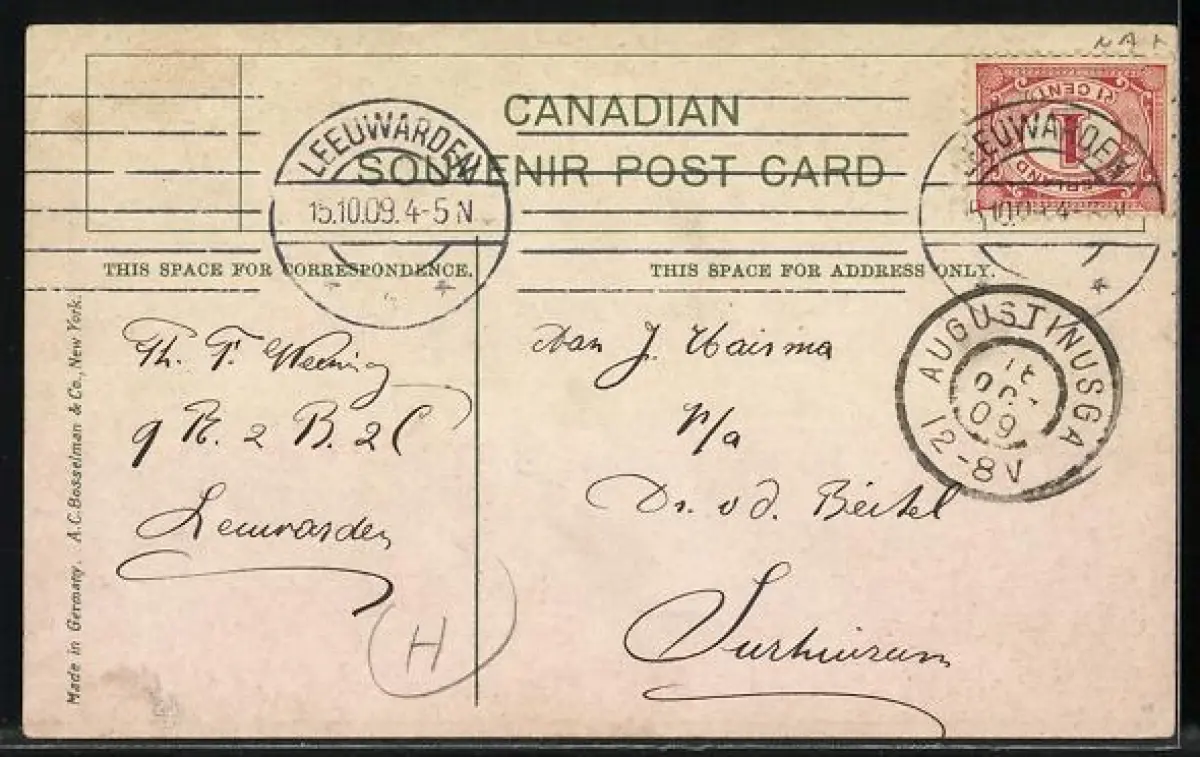 NAK
CANADIAN
SOUVENIR POST CARD
1 CENT
LEEUWARDEN
15.10.09.4-5 N
LEEUWARDEN
THIS SPACE FOR CORRESPONDENCE.
THIS SPACE FOR ADDRESS ONLY.
AUGUSTINUSGA
16 OCT 09
12-8V
Th. T. Weening
9 R. 2 B. 2 C
Leeuwarden
Aan J. Haisma
p/a
Dr. v d. Beitel
Surhuizum
H
Made in Germany. A.C. Bosselman & Co., New York.